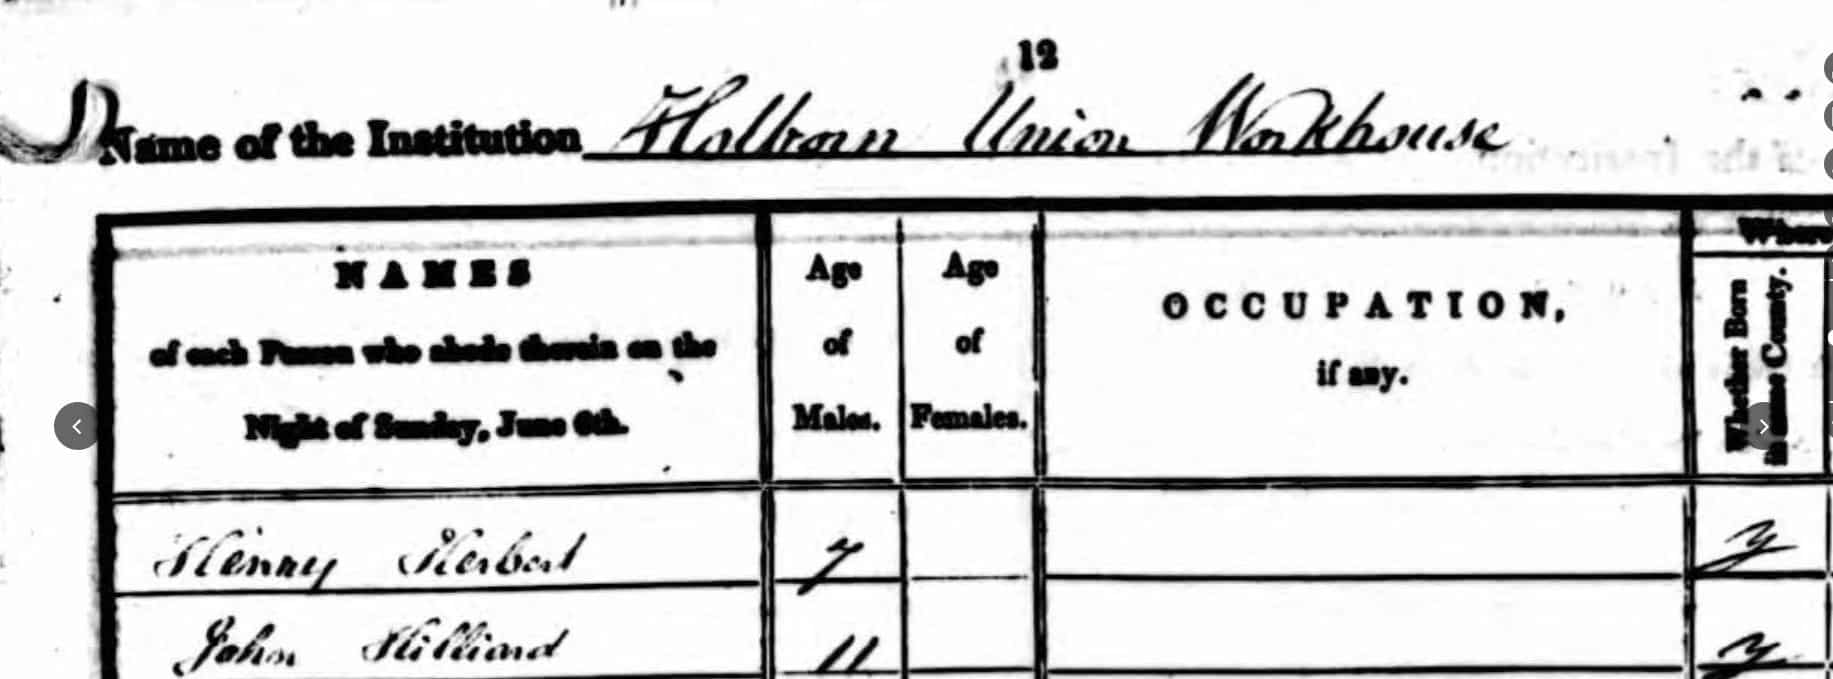 12
Name of the Institution Holborn Union Workhouse
NAMES
of each Person who abode therein on the
Night of Sunday, June 6th.
Age
of
Males.
Age
of
Females.
OCCUPATION,
if any.
Where
Whether Born
in same County.
Henry Herbert 7 y
John Hilliard 11 y